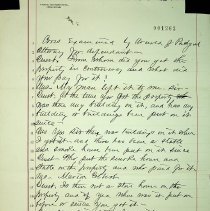 001261
Cross Examined by Amura J. Padgett
Attorney for defendant
Quest. From whom did you get the
property in controversy and what did
you pay for it?
Ans. My man left it to me.
Quest. At the time you got the property
was there any building on it, and have any
building or buildings been put on it
since?
Ans. Yes Sir they was buildings on it when
I got it. and there has been a stable
and smoke house been put on it since
Quest. Who put the smoke house and
stable on the property and who paid for it.
Ans.
Quest. Is there not a store house on the
property and if yea, who was it put on
before or since you got it.